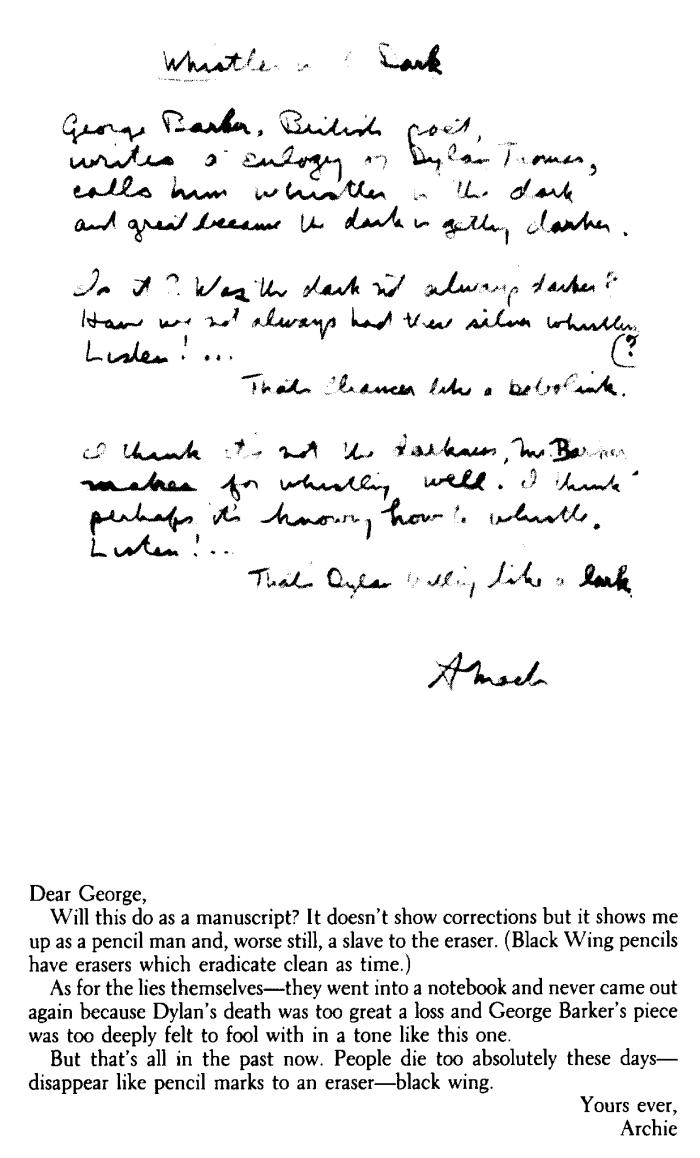 Whistler in the Dark
George Barker, British poet,
writes a eulogy of Dylan Thomas,
calls him whistler in the dark
and great because the dark is getting darker.
Is it? Was the dark not always darker?
Have we not always had these silver whistlers
(?
Listen! ...
That's Chaucer like a bobolink.
I think it's not the darkness, Mr. Barker
makes for whistling well. I think
perhaps it's knowing how to whistle.
Listen! ...
That's Dylan like a lark
AMacL
Dear George,
Will this do as a manuscript? It doesn't show corrections but it shows me
up as a pencil man and, worse still, a slave to the eraser. (Black Wing pencils
have erasers which eradicate clean as time.)
As for the lies themselves—they went into a notebook and never came out
again because Dylan's death was too great a loss and George Barker's piece
was too deeply felt to fool with in a tone like this one.
But that's all in the past now. People die too absolutely these days—
disappear like pencil marks to an eraser—black wing.
Yours ever,
Archie